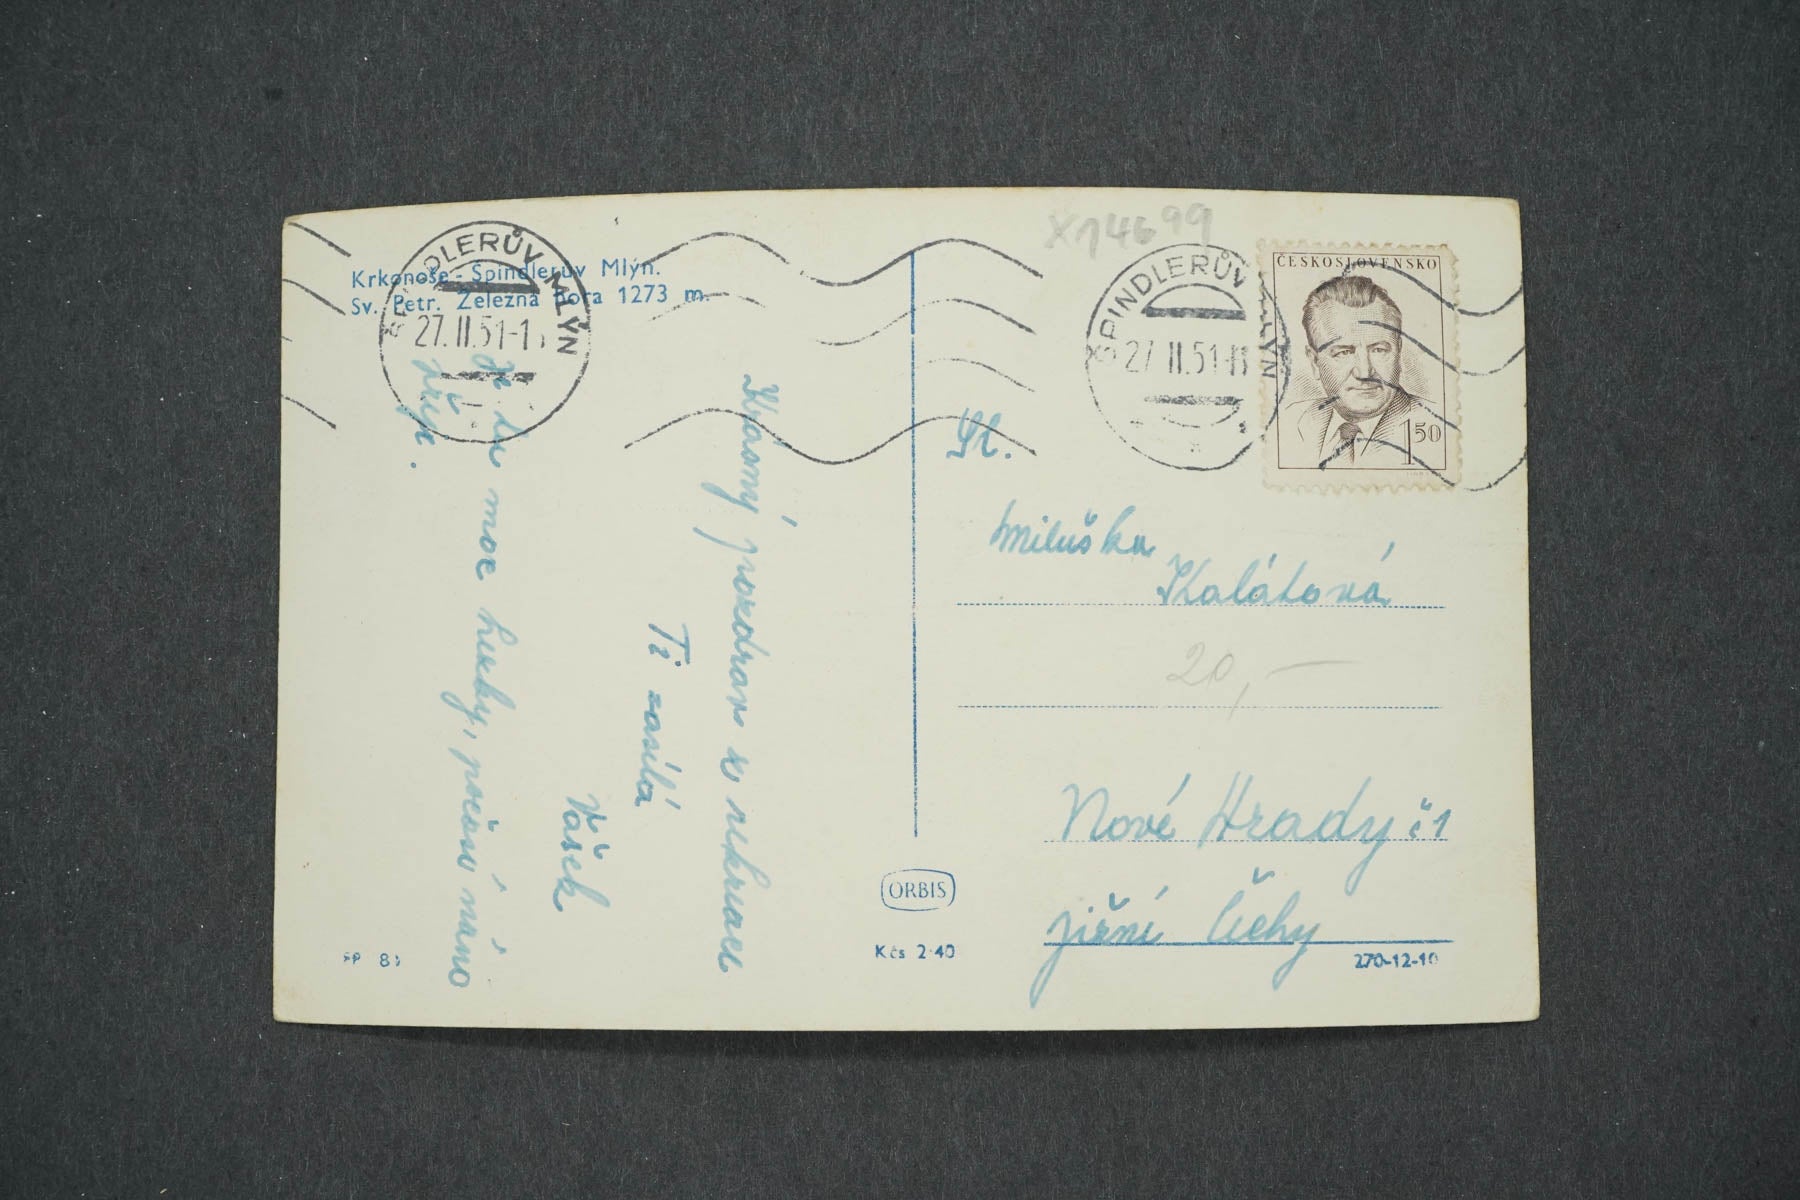 Krkonoše - Špindlerův Mlýn.
Sv. Petr. Železná hora 1273 m.
ŠPINDLERŮV MLÝN
27. II. 51-1
X14699
ŠPINDLERŮV MLÝN
27 II. 51-
ČESKOSLOVENSKO
1 50
Krásný pozdrav z rekreace
Ti zasílá
Vašek
Je tu moc hezky, počasí máme
Sl.
Miluška
Kalátová
20,-
Nové Hrady č 1
jižní Čechy
ORBIS
Kčs 2·40
270-12-10